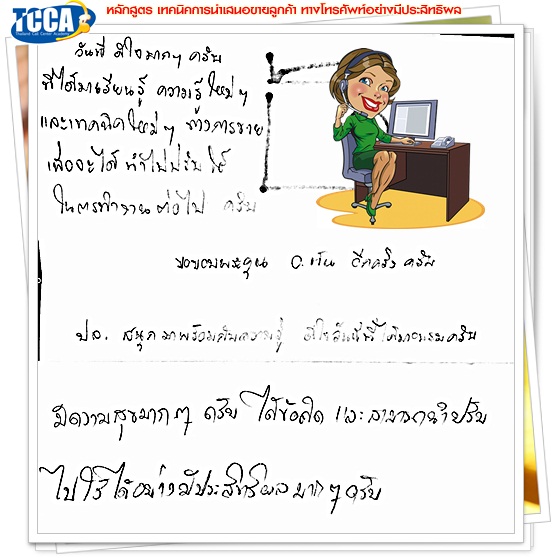 หลักสูตร เทคนิคการนำเสนอขายลูกค้า ทางโทรศัพท์อย่างมีประสิทธิผล
TCCA
Thailand Call Center Academy
วันนี้ ดีใจมากๆ ครับ
ที่ได้มาเรียนรู้ ความรู้ใหม่ๆ
และเทคนิคใหม่ๆ ทางการขาย
เพื่อจะได้ นำไปปรับใช้
ในการทำงานต่อไป ครับ
ขอขอบพระคุณ อ. อีกครั้ง ครับ
ปล. สนุกมาพร้อมกับความรู้ ดีใจวันนี้ที่ได้มาอบรมครับ
มีความสุขมากๆ ครับ ได้ข้อคิด และสามารถนำไปปรับ
ไปใช้ได้อย่างมีประสิทธิผลมากๆครับ